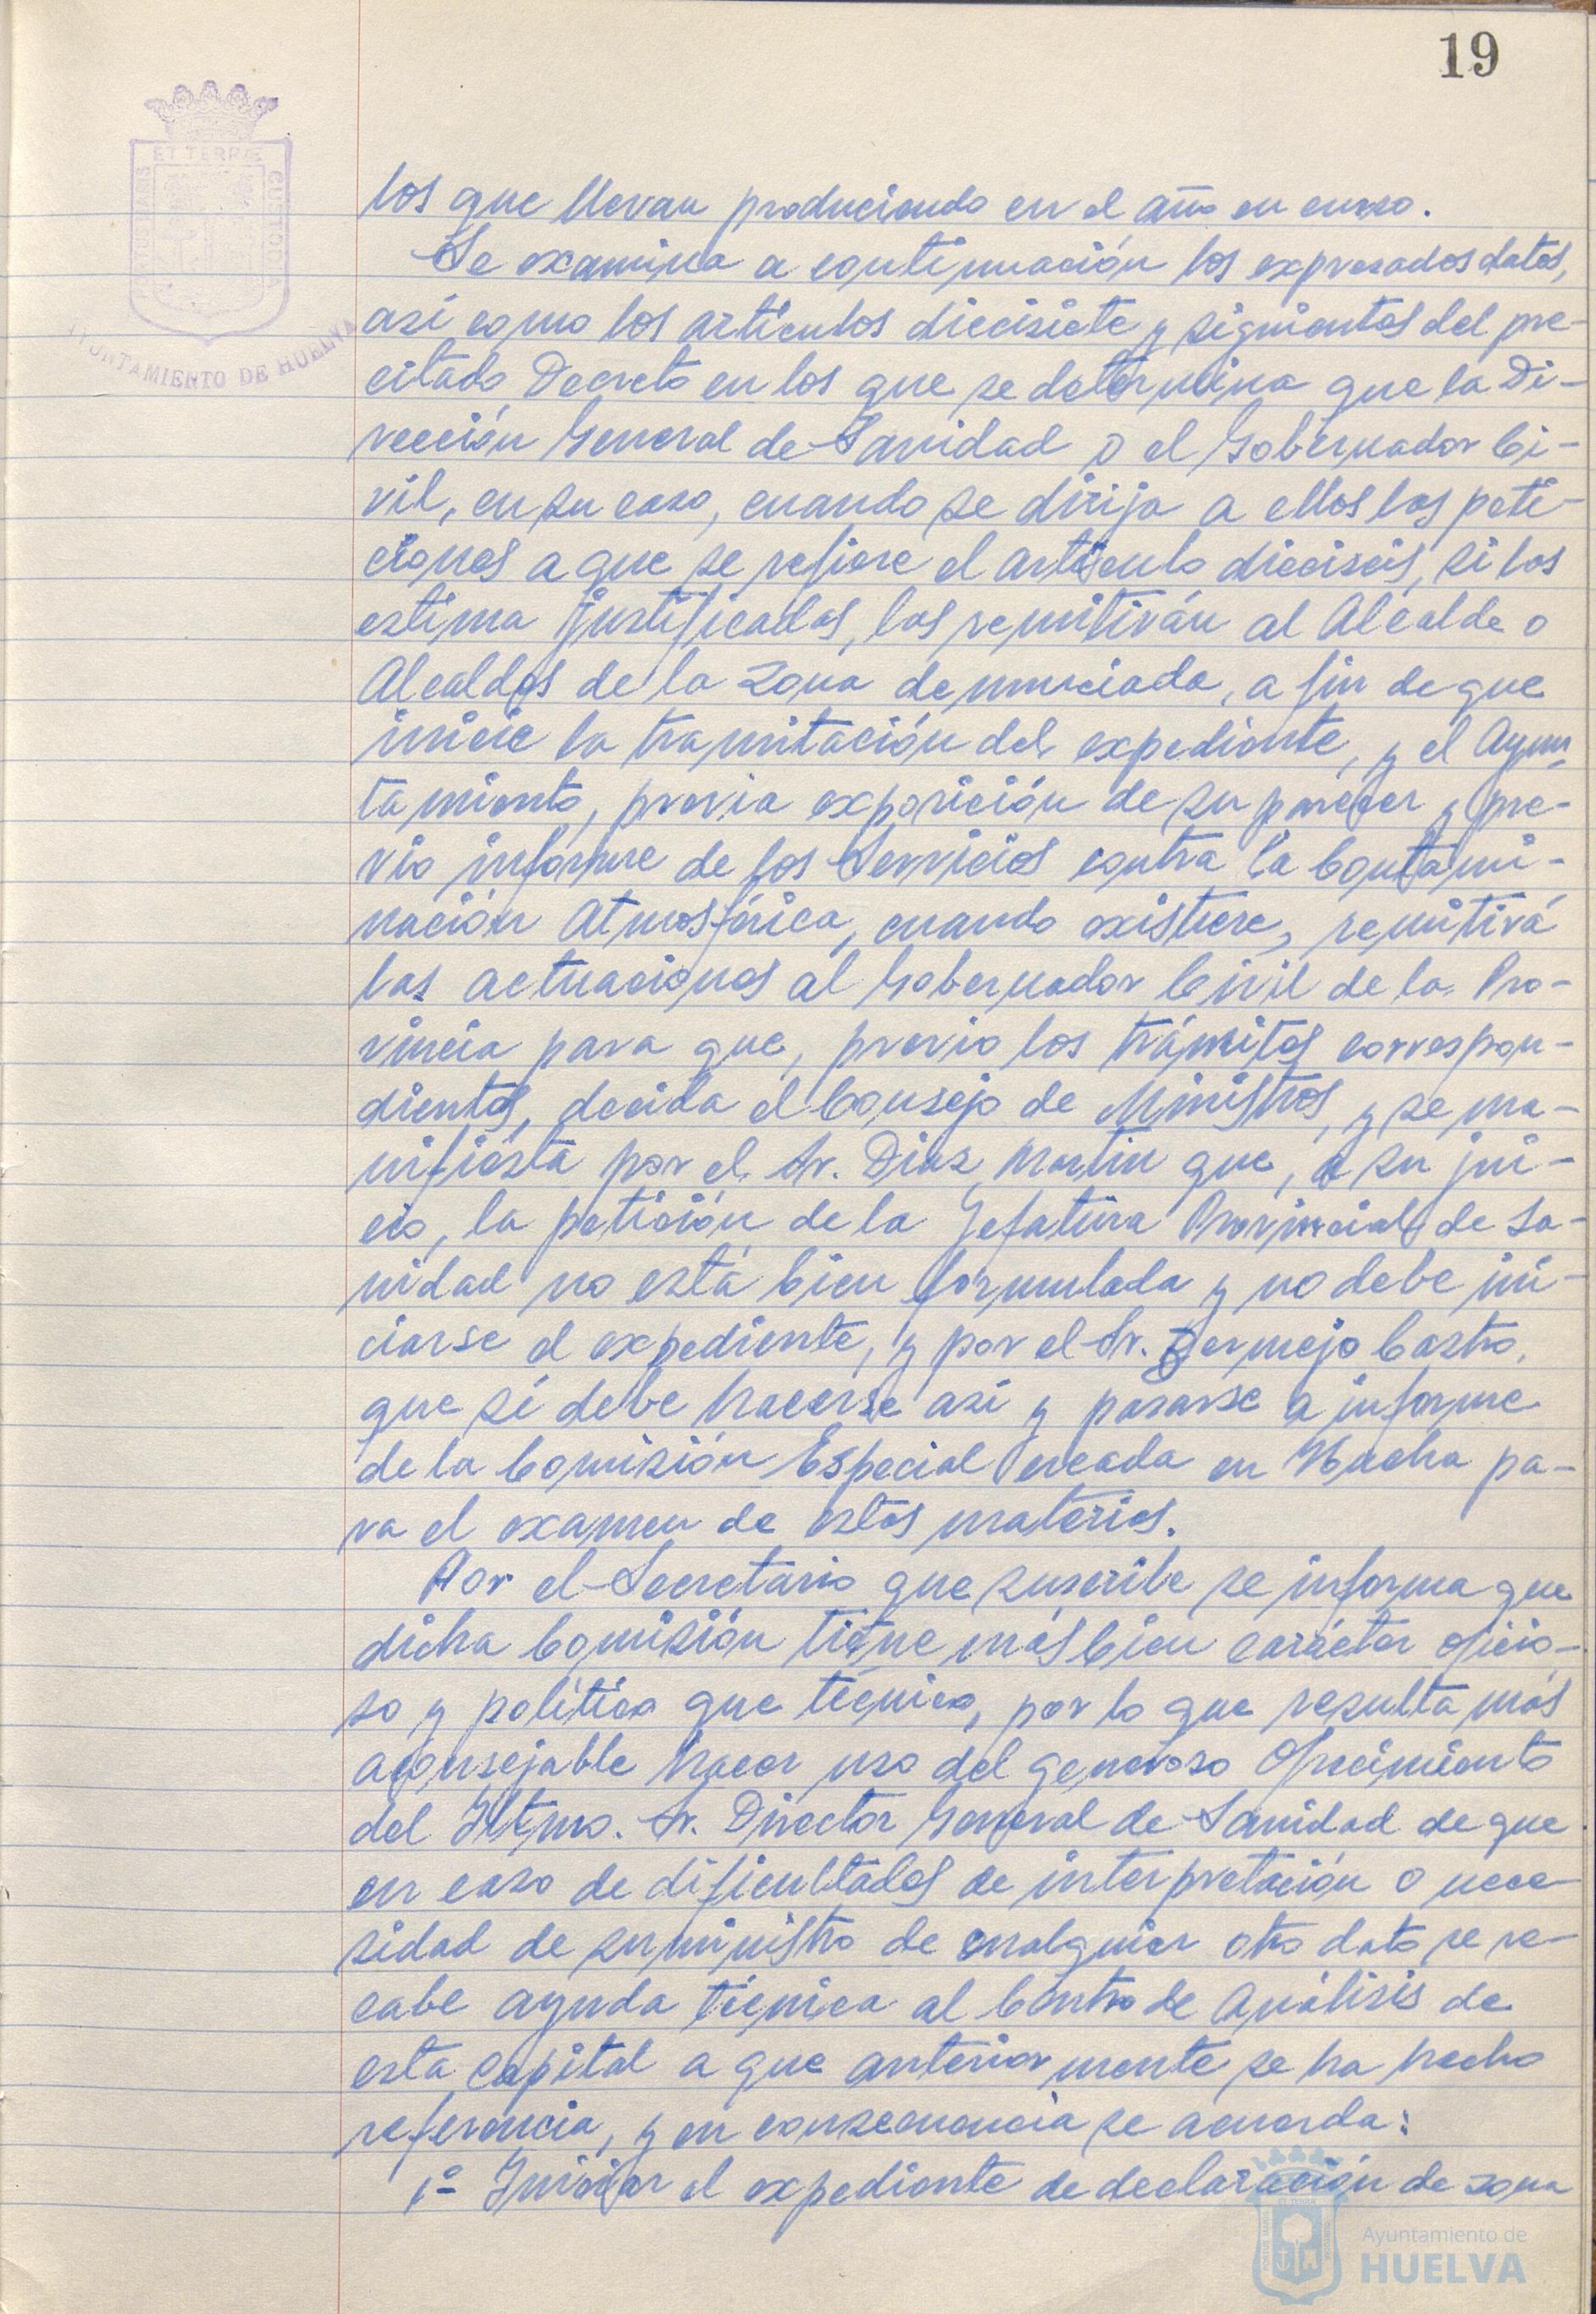 19
ET TERRÆ
PORTUS MARIS
CUSTODIA
AYUNTAMIENTO DE HUELVA
los que llevan produciendo en el año en curso.
Se examina a continuación los expresados datos,
así como los artículos diecisiete y siguientes del pre-
citado Decreto en los que se determina que la Di-
rección General de Sanidad o el Gobernador Ci-
vil, en su caso, cuando se dirija a ellos las peti-
ciones a que se refiere el artículo dieciseis, si los
estima justificadas, las remitirán al Alcalde o
Alcaldes de la Zona denunciada, a fin de que
inicie la tramitación del expediente, y el Ayun
tamiento, previa exposición de su parecer y pre-
vio informe de los Servicios contra la Contami-
nación Atmosférica, cuando existiere, remitirá
las actuaciones al Gobernador Civil de la Pro-
vincia para que, previo los trámites correspon-
dientes, decida el Consejo de Ministros, y se ma-
nifiesta por el Sr. Diaz Martin que, a su jui-
cio, la petición de la Jefatura Provincial de Sa-
nidad no está bien formulada y no debe ini-
ciarse el expediente, y por el Sr. Bermejo Castro,
que sí debe hacerse así y pasarse a informe
de la Comisión Especial creada en Huelva pa-
ra el examen de estas materias.
Por el Secretario que suscribe se informa que
dicha Comisión tiene más bien carácter oficio-
so y político que técnico, por lo que resulta más
aconsejable hacer uso del generoso ofrecimiento
del Iltmo. Sr. Director General de Sanidad de que
en caso de dificultades de interpretación o nece-
sidad de suministro de cualquier otro dato se re-
cabe ayuda técnica al Centro de Análisis de
esta capital a que anteriormente se ha hecho
referencia, y en consecuencia se acuerda:
1º Iniciar el expediente de declaración de zona
Ayuntamiento de
HUELVA